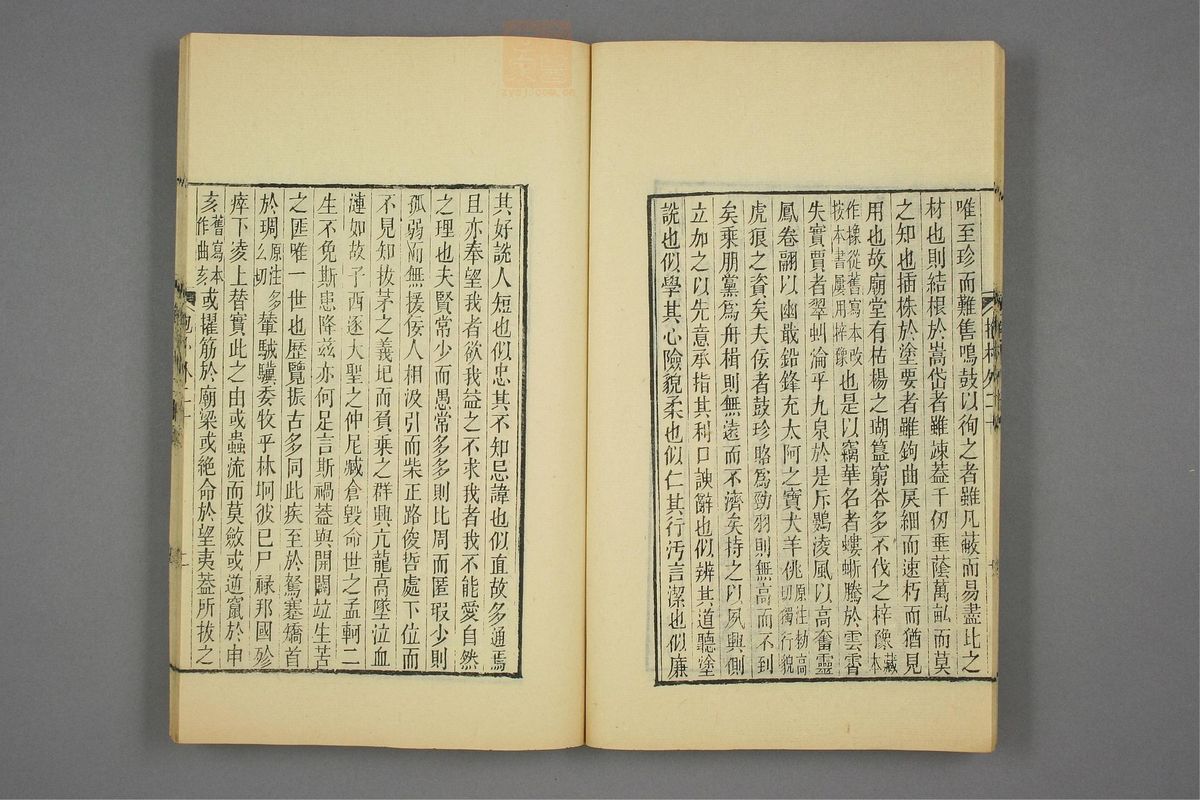 唯至珍而難售鳴鼓以徇之者雖凡蔽而易盡比之
材也則結根於嵩岱者雖竦蓋千仞垂蔭萬畝而莫
之知也插株於塗要者雖鉤曲戾細而速朽而猶見
用也故廟堂有枯楊之瑚簋窮谷多不伐之梓豫藏本
作橡從舊寫本改按本書屢用梓豫也是以竊華名者螻蜥騰於雲霄
失實賈者翠虬淪乎九泉於是斥鷃凌風以高奮靈
鳳卷翮以幽戢鉛鋒充太阿之寶犬羊佻原注勑高切獨行貌
虎狼之資矣夫佞者鼓珍賂爲勁羽則無高而不到
矣乘朋黨爲舟楫則無遠而不濟矣持之以夙興側
立加之以先意承指其利口諛辭也似辨其道聽塗
說也似學其心險貌柔也似仁其行汚言潔也似廉
其好說人短也似忠其不知忌諱也似直故多通焉
且亦奉望我者欲我益之不求我者我不能愛自然
之理也夫賢常少而愚常多多則比周而匿瑕少則
孤弱而無援佞人相汲引而柴正路俊哲處下位而
不見知拔茅之義圯而負乘之群興亢龍高墜泣血
漣如故子西逐大聖之仲尼臧倉毀命世之孟軻二
生不免斯患降茲亦何足言斯禍蓋與開闢竝生苦
之匪唯一世也歷覽振古多同此疾至於駑蹇矯首
於琱原注多幺切輦駥驥委牧乎林坰彼己尸祿邦國殄
瘁下凌上替實此之由或蟲流而莫斂或逃竄於申
亥舊寫本作曲亥或擢筋於廟梁或絶命於望夷蓋所拔之